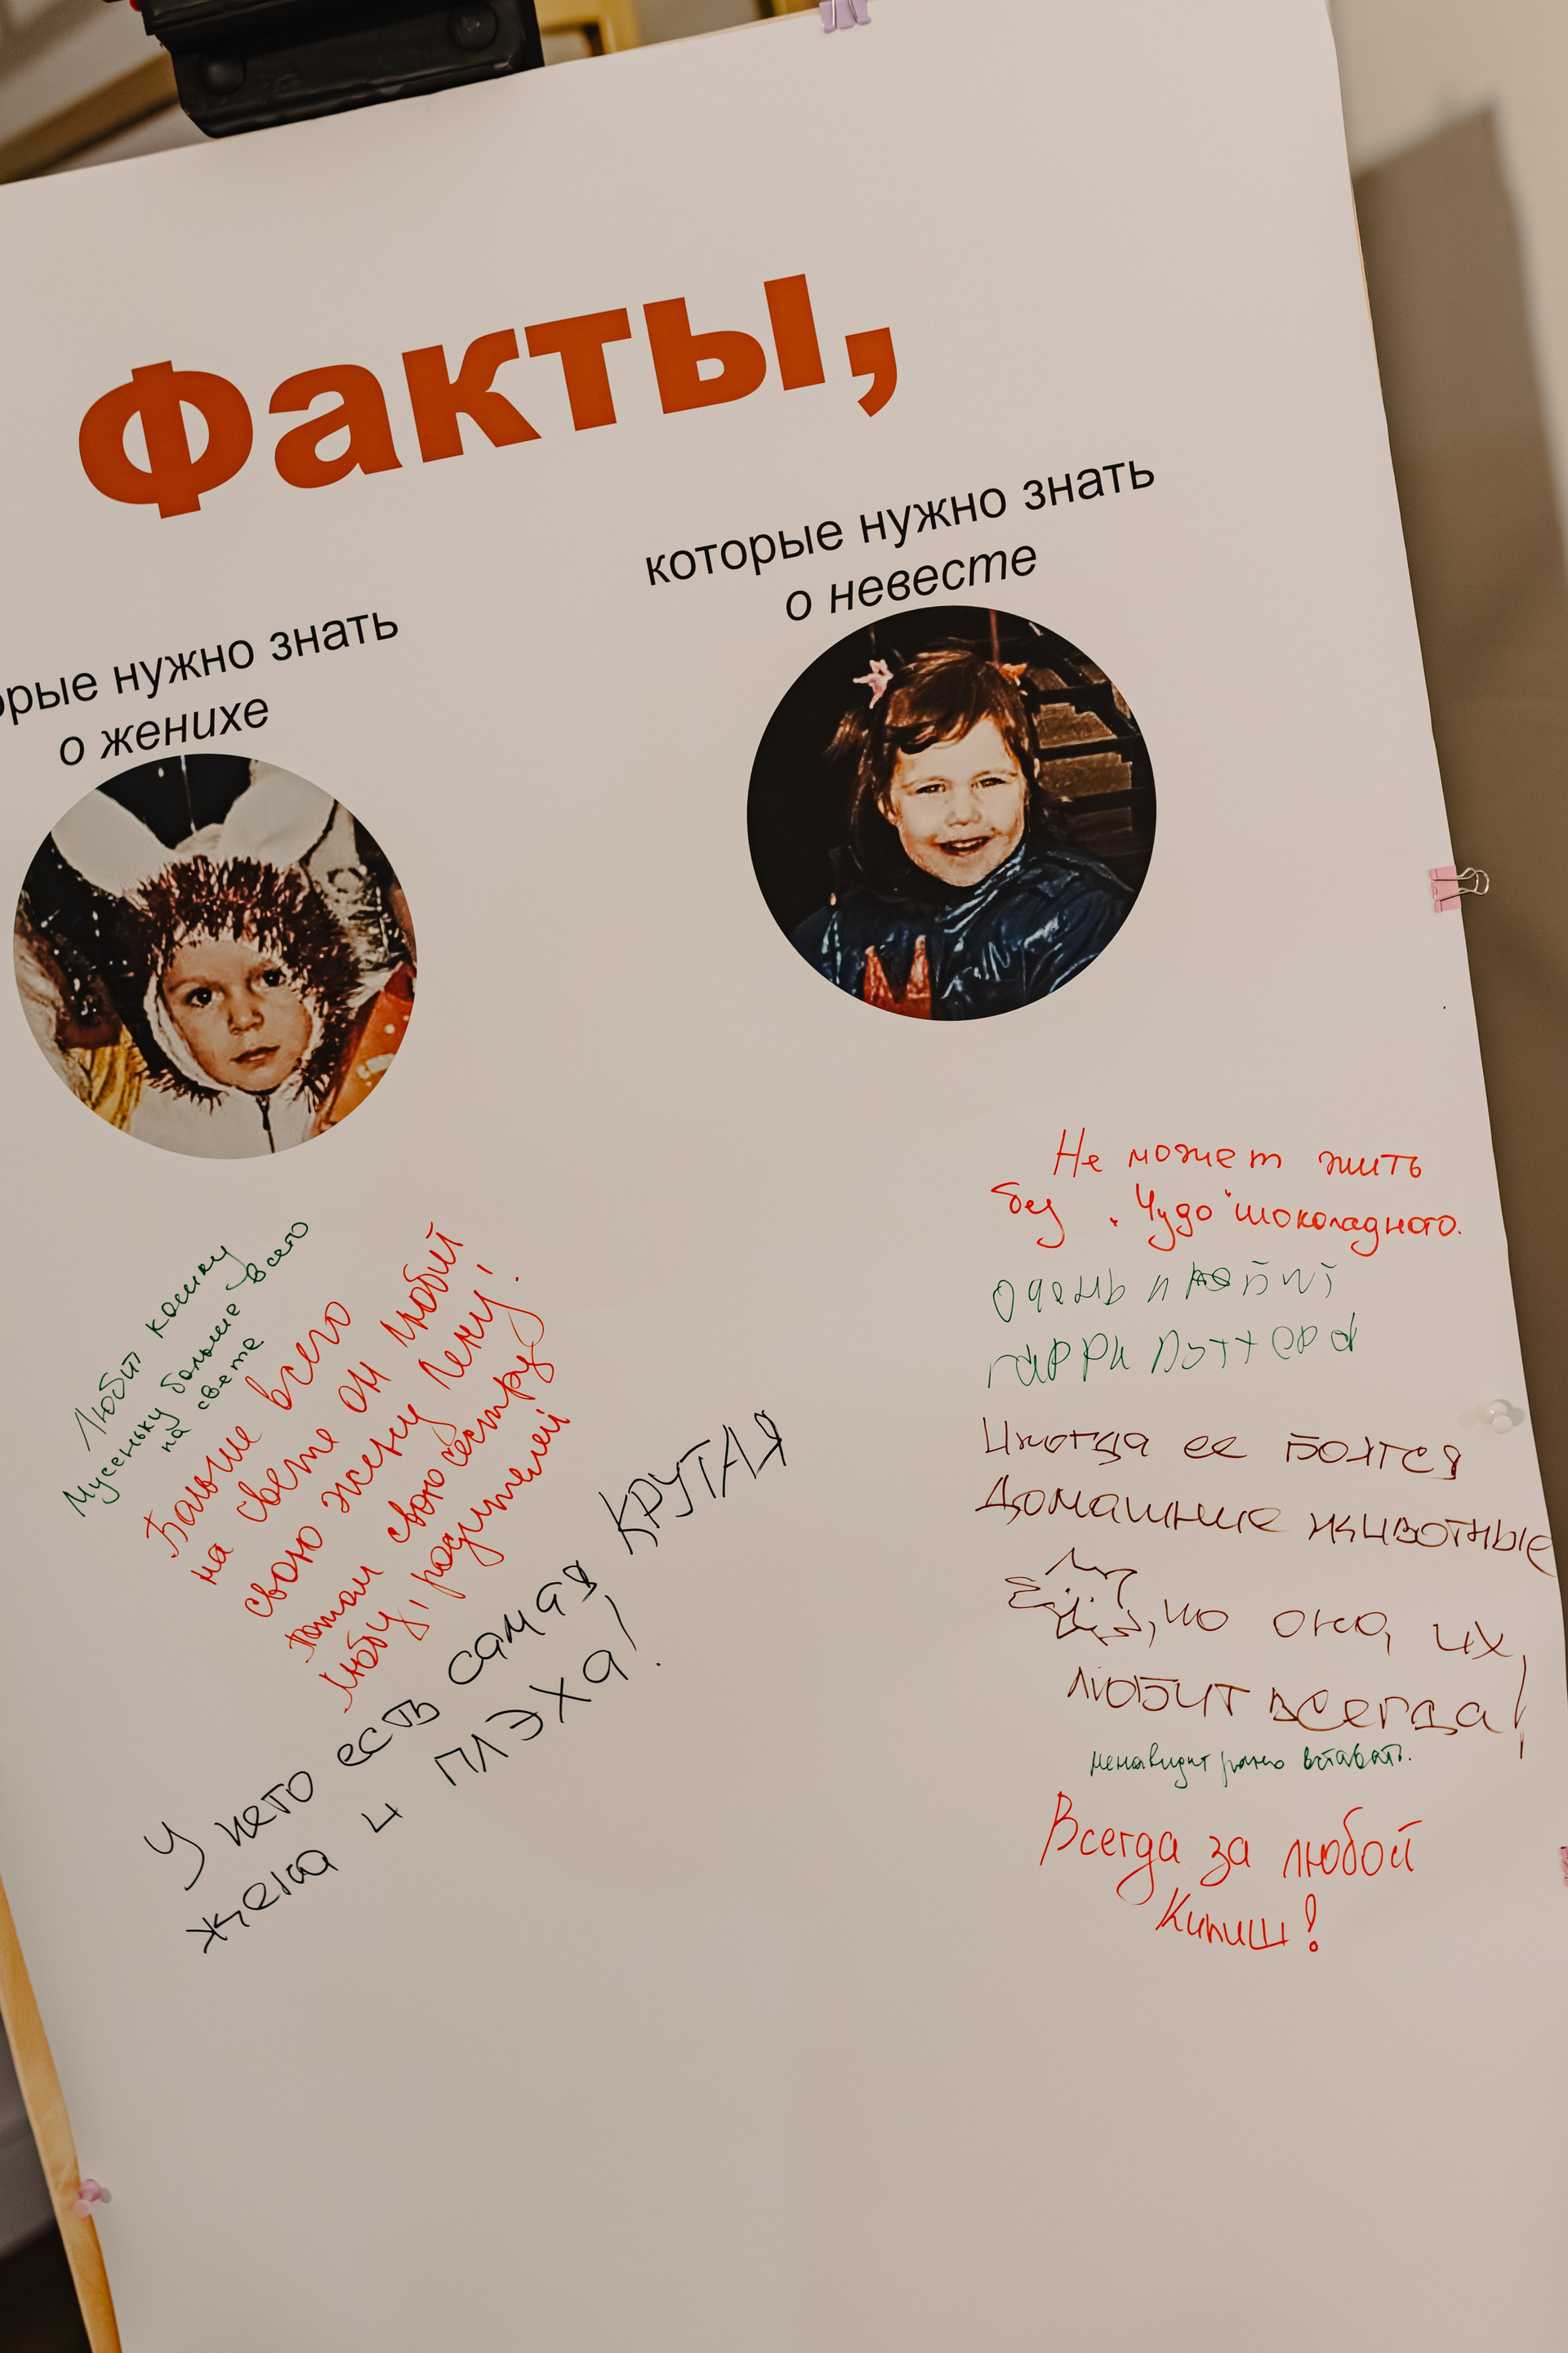 Факты,
орые нужно знать
о женихе
которые нужно знать
о невесте
Любит кошку
Мусеньку больше всего
на свете
Больше всего
на свете он любит
свою жену Лену!
Потом свою сестру
Любу, родителей
У него есть самая КРУТАЯ
жена и ПЛЭХА!
Не может жить
без "Чудо" шоколадного.
Очень любит
гарри поттера
Иногда ее боятся
Домашние животные
, но она их
любит всегда!
ненавидит рано вставать.
Всегда за любой
Кипиш!